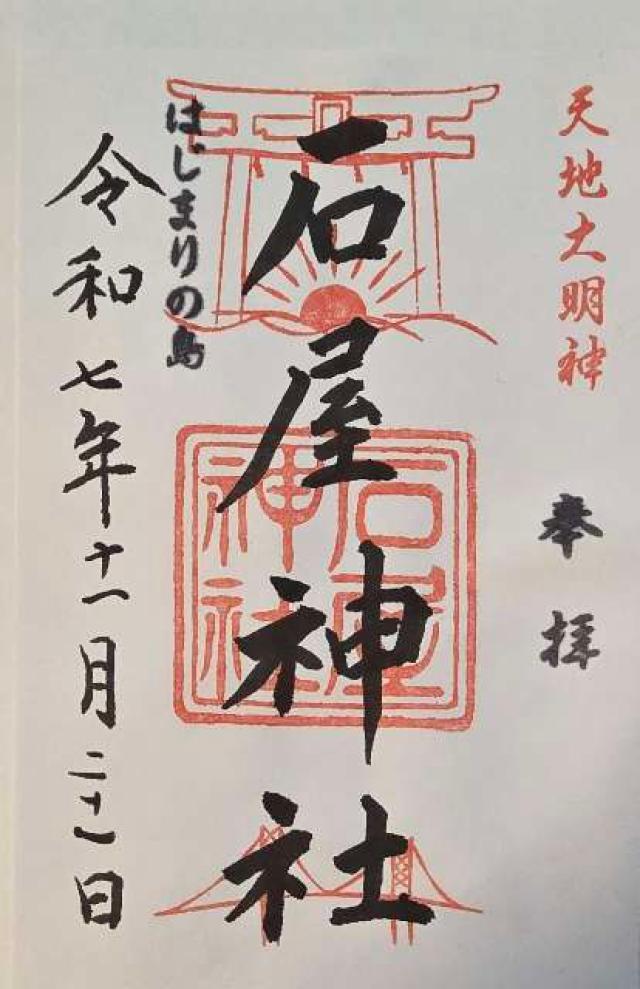 天地大明神
奉拝
石屋神社
石屋神社
はじまりの島
令和七年十一月二十一日